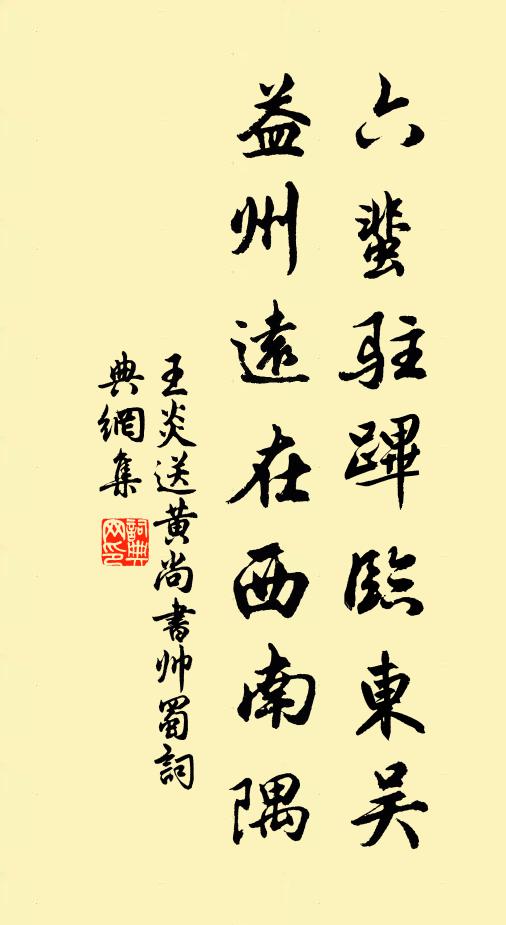 六蜚駐蹕臨東吴
益州遠在西南隅
王炎送黄尚書帅蜀詞
典網集
詞典
网印